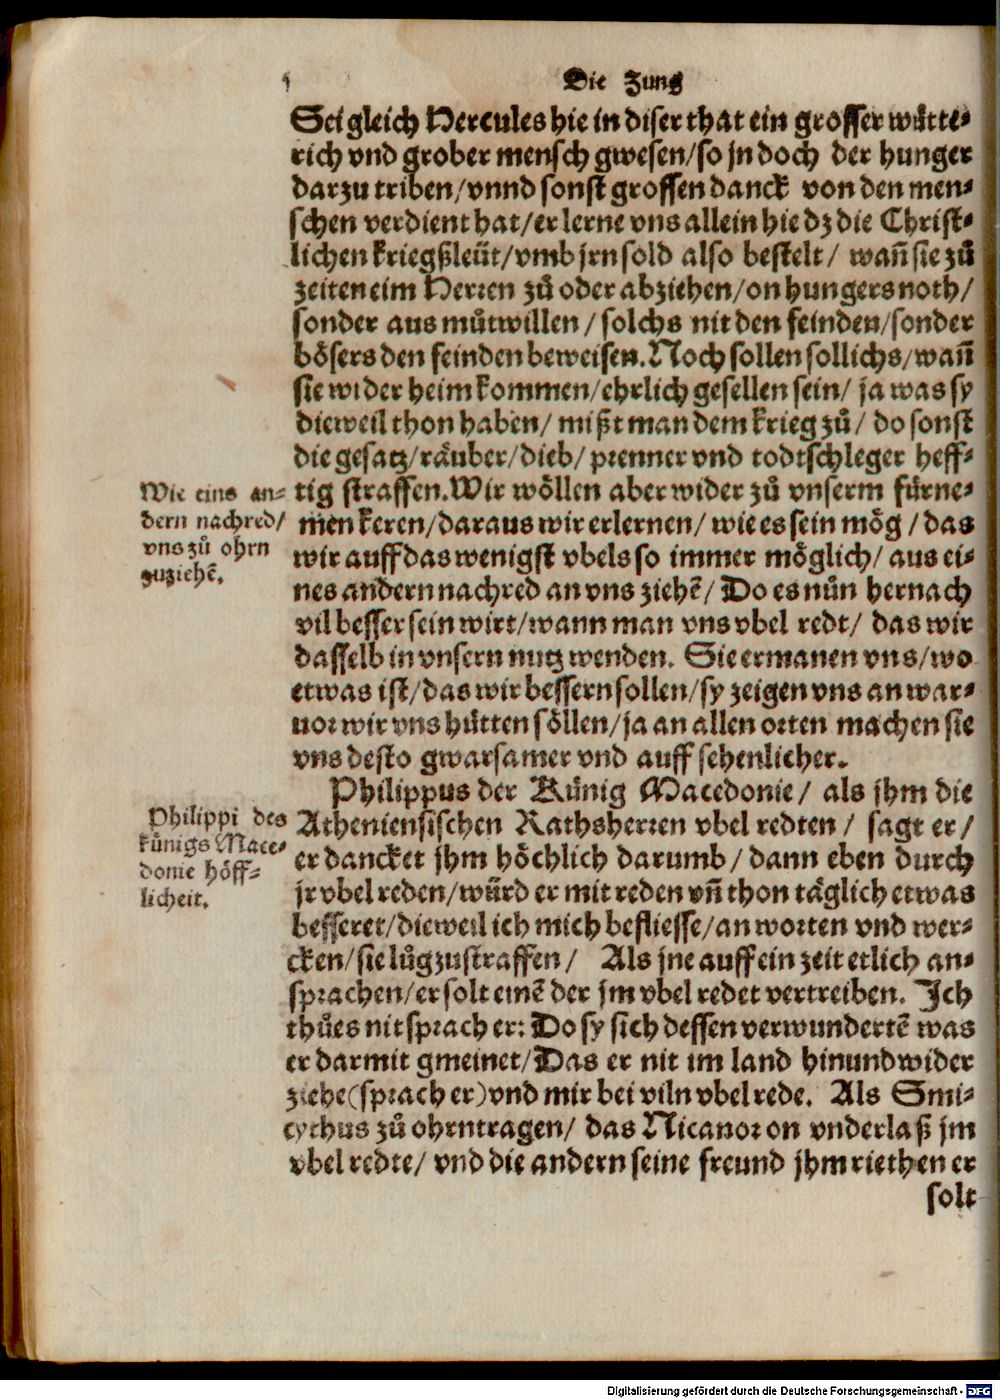 Die Zung
Sei gleich Hercules hie in diser that ein grosser wütte-
rich vnd grober mensch gwesen/so jn doch der hunger
darzu triben/vnnd sonst grossen danck von den men-
schen verdient hat/er lerne vns allein hie dz die Christ-
lichen kriegßleüt/vmb jrn sold also bestelt/ wañ sie zů
zeiten eim Herren zů oder abziehen/on hungers noth/
sonder aus můtwillen/ solchs nit den feinden/sonder
bösers den feinden beweisen. Noch sollen sollichs/wañ
sie wider heim kommen/ehrlich gesellen sein/ ja was sy
dieweil thon haben/ mißt man dem krieg zů/ do sonst
die gesatz/räuber/dieb/prenner vnd todtschleger heff-
tig straffen. Wir wöllen aber wider zů vnserm fürne-
men keren/daraus wir erlernen/ wie es sein mög/das
wir auff das wenigst vbels so immer möglich/ aus ei-
nes andern nachred an vns ziehē/ Do es nůn hernach
vil besser sein wirt/wann man vns vbel redt/ das wir
dasselb in vnsern nutz wenden. Sie ermanen vns/wo
etwas ist/das wir bessern sollen/sy zeigen vns an war-
uor wir vns hütten söllen/ja an allen orten machen sie
vns desto gwarsamer vnd auff sehenlicher.
Wie eins an-
dern nachred/
vns zů ohrn
zuziehē.
Philippus der Künig Macedonie/ als jhm die
Atheniensischen Rathsherren vbel redten/ sagt er/
er dancket jhm höchlich darumb/dann eben durch
jr vbel reden/würd er mit reden vñ thon täglich etwas
besseret/dieweil ich mich befliesse/an worten vnd wer-
cken/sie lůgzustraffen/ Als jne auff ein zeit etlich an-
sprachen/er solt einē der jm vbel redet vertreiben. Ich
thůes nit sprach er: Do sy sich dessen verwundertē was
er darmit gmeinet/Das er nit im land hin und wider
ziehe(sprach er)vnd mir bei viln vbel rede. Als Smi-
cythus zů ohrn tragen/ das Nicanor on vnderlaß jm
vbel redte/ vnd die andern seine freund jhm riethen er
solt
Philippi des
künigs Mace-
donie höff-
licheit.
Digitalisierung gefördert durch die Deutsche Forschungsgemeinschaft - DFG